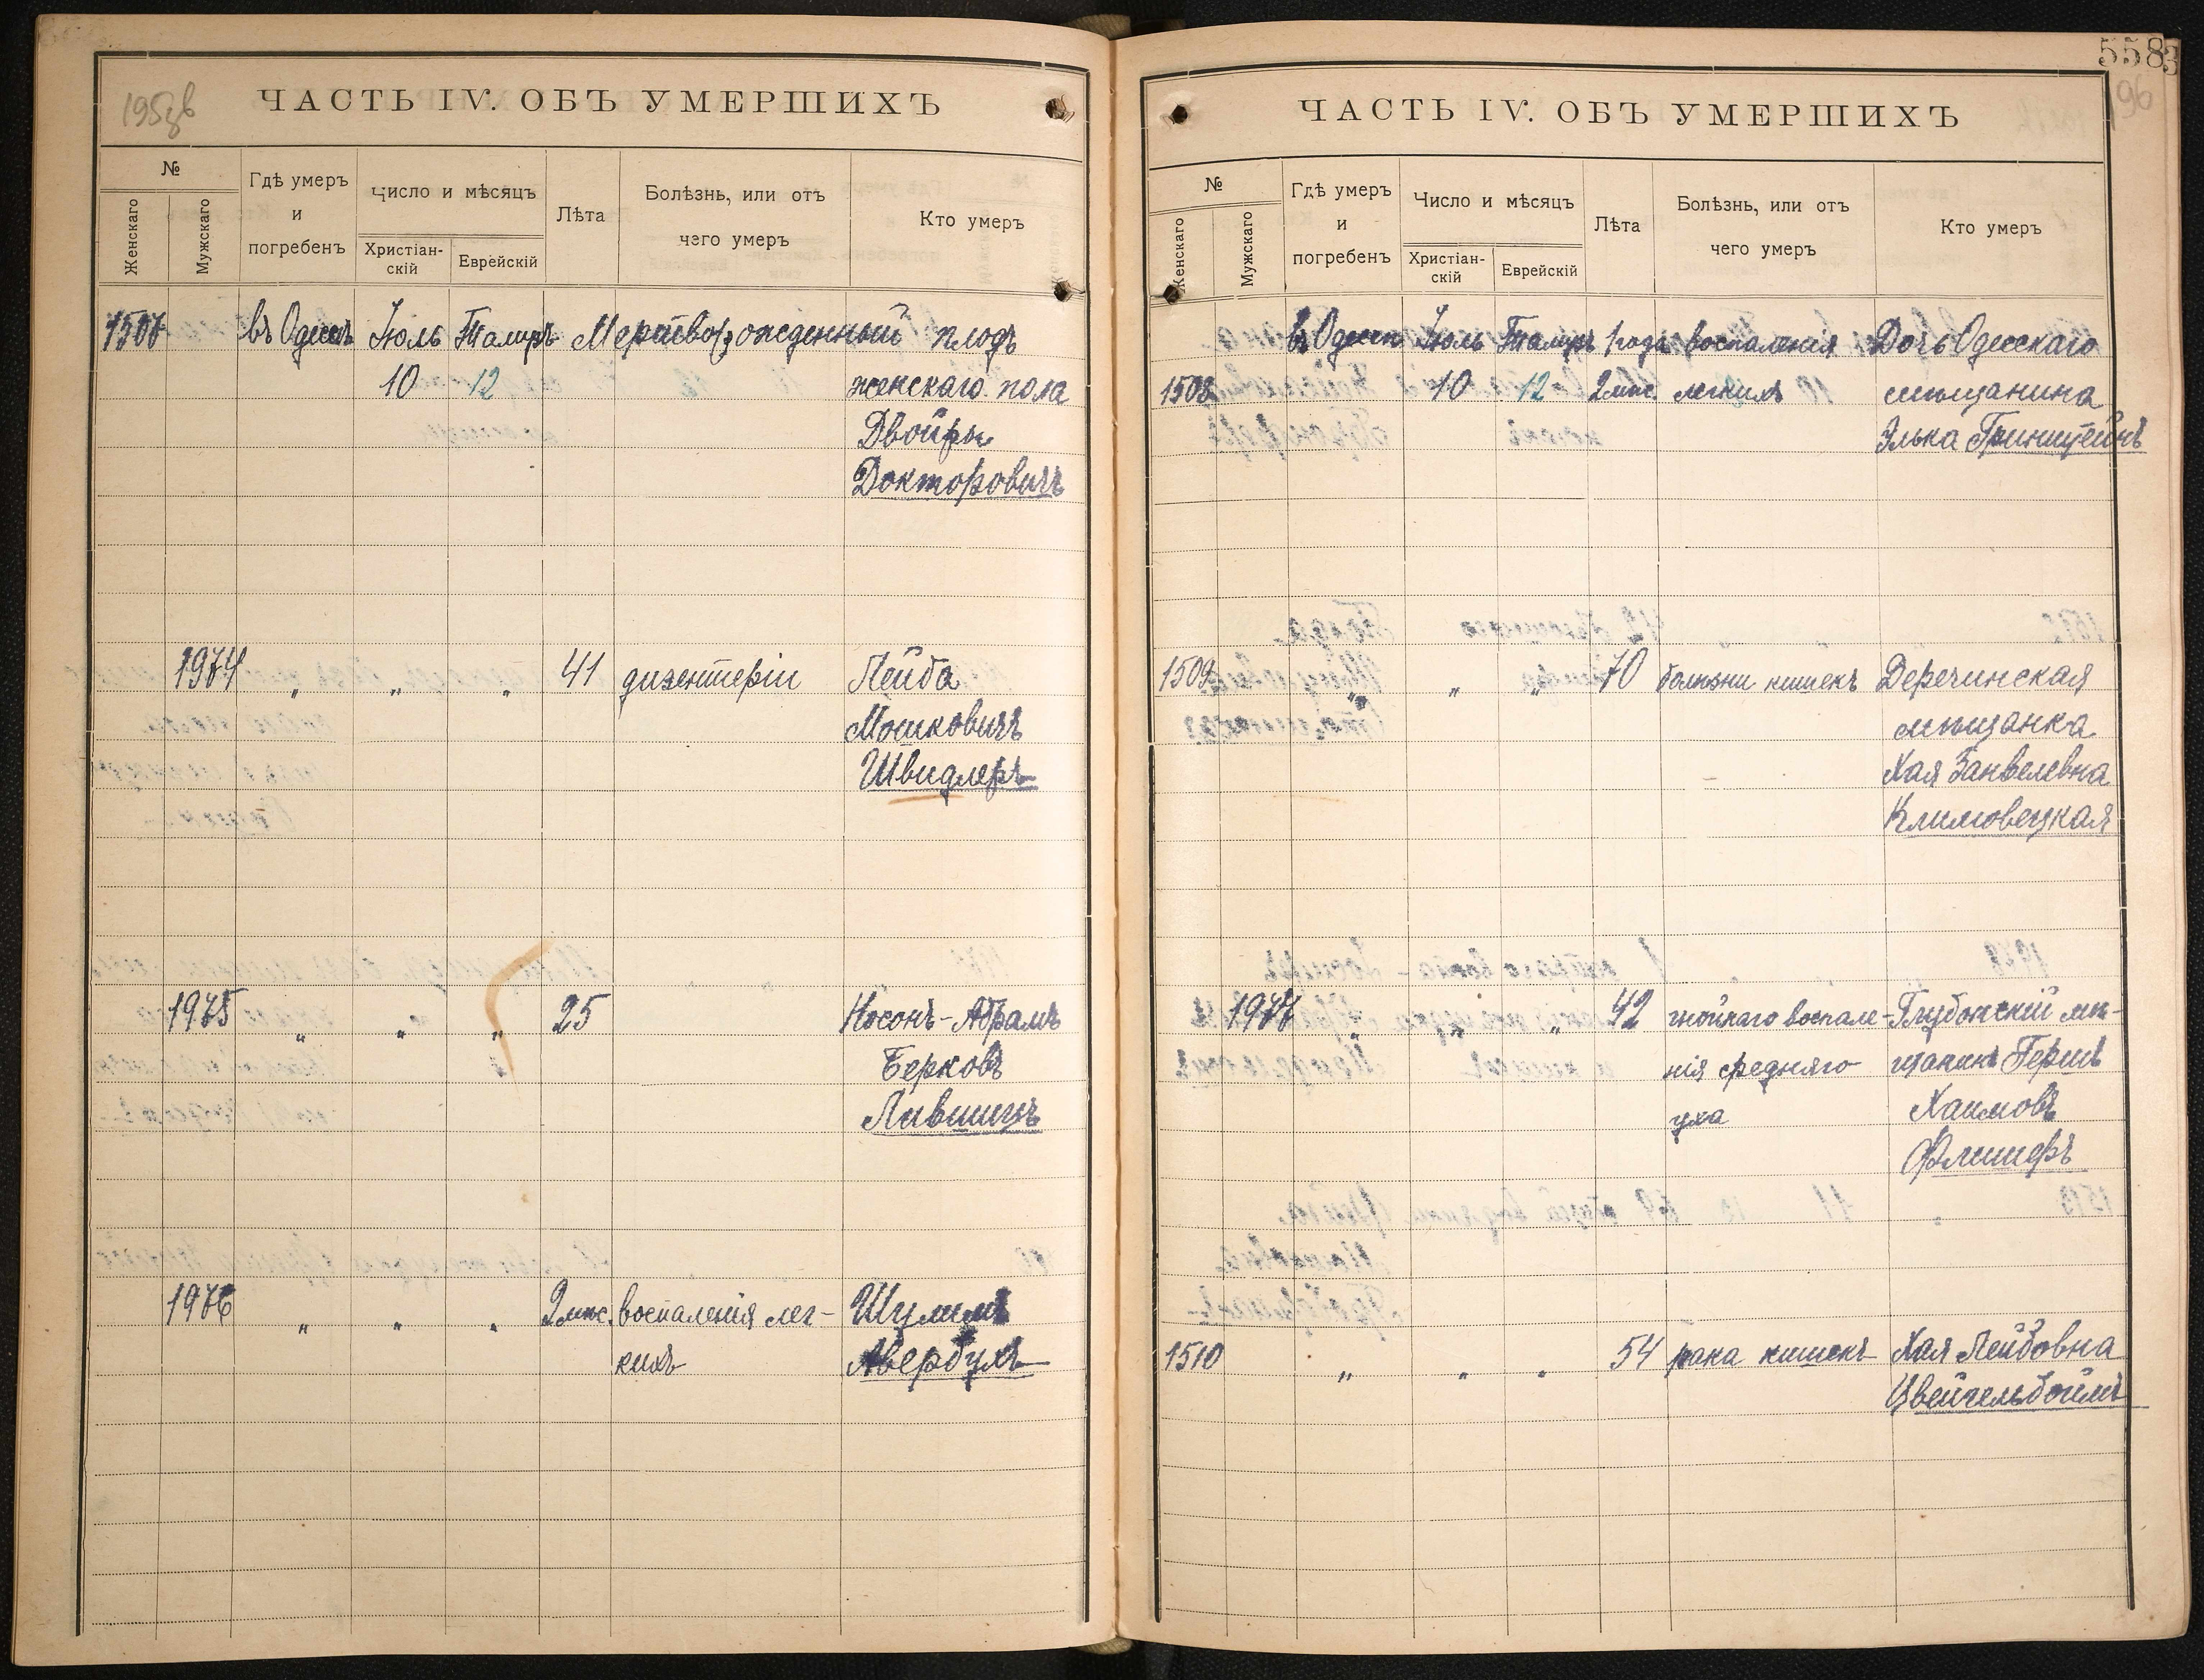 195зв
ЧАСТЬ IV. ОБЪ УМЕРШИХЪ
№
Женскаго
Мужскаго
Гдѣ умеръ
и
погребенъ
Число и мѣсяцъ
Христіан-
скій
Еврейскій
Лѣта
Болѣзнь, или отъ
чего умеръ
Кто умеръ
1507 въ Одессѣ Іюль Тамузъ Мертворожденный плодъ
10 12 женскаго пола
Двойры
Докторовичъ
1974 „ „ „ 41 дизентеріи Лейба
Мошковичъ
Швидлеръ
1975 „ „ „ 25 Носонъ-Абрамъ
Берковъ
Лившицъ
1976 „ „ „ 2 мѣс. воспаленія лег- Шулимъ
кихъ Авербухъ
5583
196
ЧАСТЬ IV. ОБЪ УМЕРШИХЪ
№
Женскаго
Мужскаго
Гдѣ умеръ
и
погребенъ
Число и мѣсяцъ
Христіан-
скій
Еврейскій
Лѣта
Болѣзнь, или отъ
чего умеръ
Кто умеръ
въ Одессѣ Іюль Тамузъ 1 годъ воспаленія Дочь Одесскаго
1508 10 12 2 мѣс. легкихъ мѣщанина
Элька Гринштейнъ
1509 „ „ „ 70 болѣзни кишекъ Деречинская
мѣщанка
Хая Занвелевна
Климовецкая
1977 „ „ „ 42 гнойнаго воспале- Глубокскій мѣ-
нія средняго щанинъ Гершъ
уха Хаимовъ
Флишеръ
1510 „ „ „ 54 рака кишекъ Хая Лейбовна
Цвейгельбоймъ